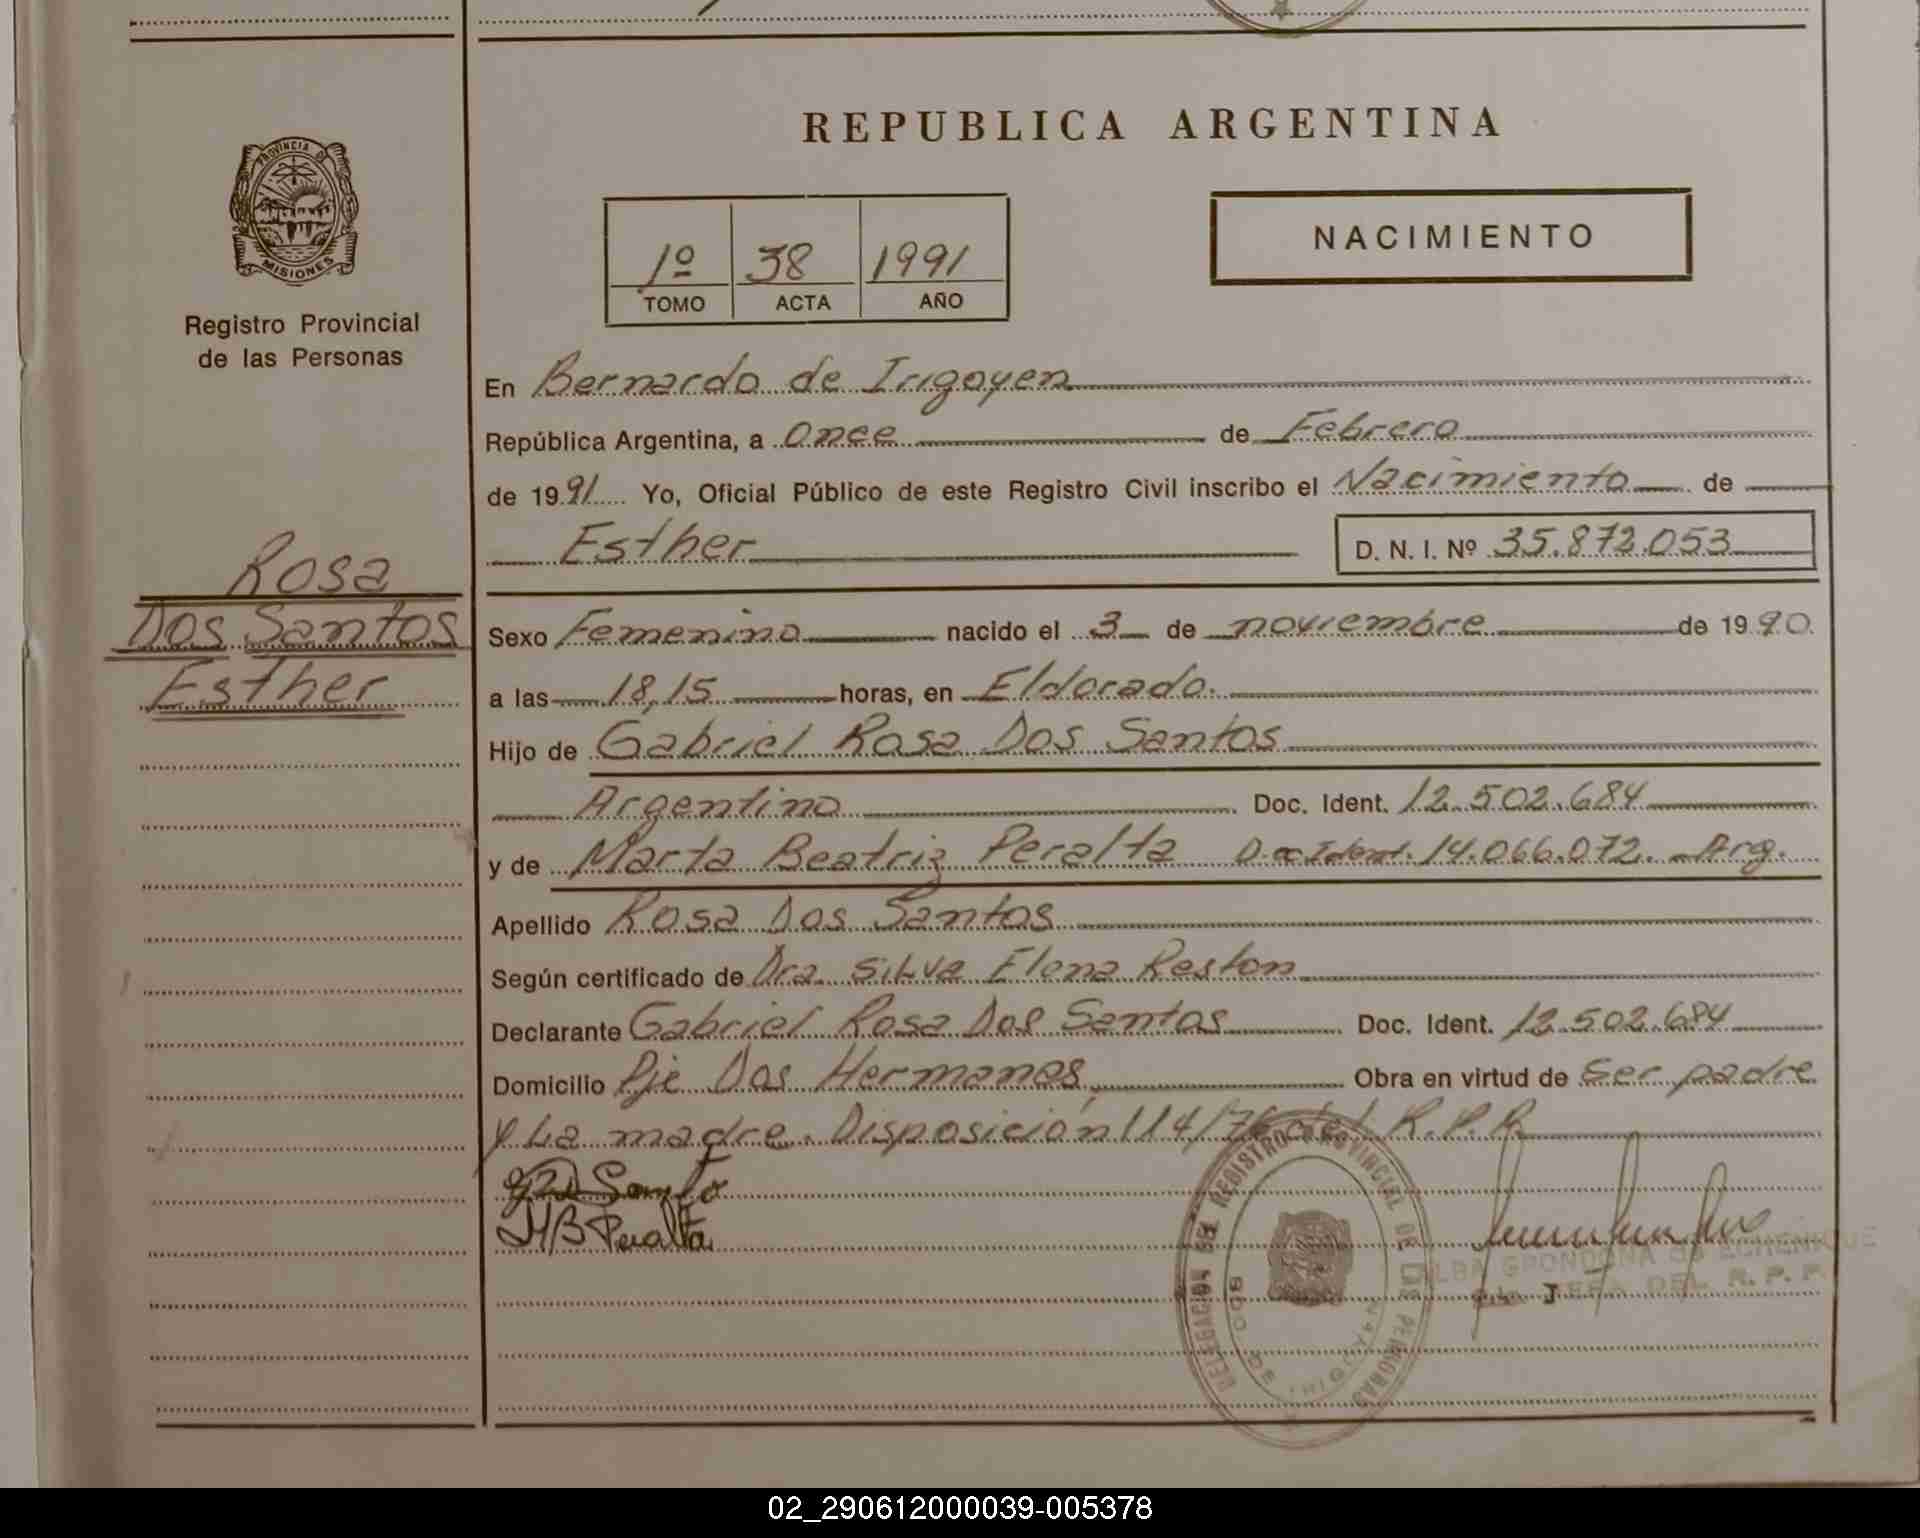 REPUBLICA ARGENTINA
PROVINCIA DE
MISIONES
Registro Provincial
de las Personas
1º 38 1991
TOMO ACTA AÑO
NACIMIENTO
En Bernardo de Irigoyen
República Argentina, a Once de Febrero
de 1991 Yo, Oficial Público de este Registro Civil inscribo el Nacimiento de
Esther D. N. I. Nº 35.872.053
Rosa
Dos Santos
Esther
Sexo Femenino nacido el 3 de noviembre de 1990.
a las 18,15 horas, en Eldorado.
Hijo de Gabriel Rosa Dos Santos
Argentino Doc. Ident. 12.502.684
y de Marta Beatriz Peralta Doc Ident. 14.066.072. Arg.
Apellido Rosa Dos Santos
Según certificado de Dra. Silva Elena Reston
Declarante Gabriel Rosa Dos Santos Doc. Ident. 12.502.684
Domicilio Pje Dos Hermanas, Obra en virtud de Ser padre
y La madre. Disposición 114/76 del R.P.P.
MB Peralta
DELEGACION DEL REGISTRO PROVINCIAL DE LAS PERSONAS
DE IRIGOYEN
DE ECHENIQUE
JEFA DEL R. P. P.
02_290612000039-005378